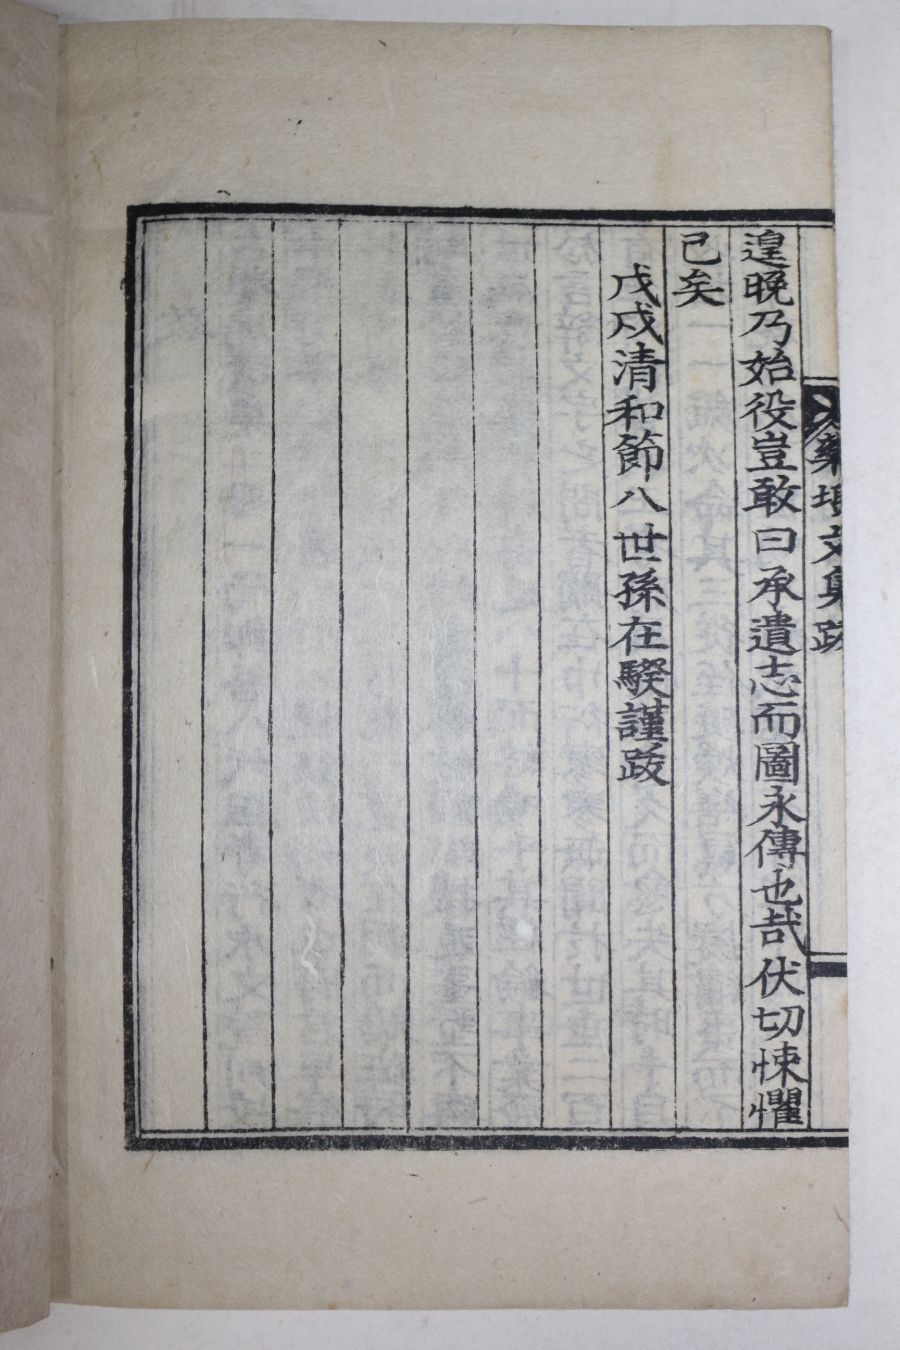 遑晩乃始役豈敢曰承遺志而圖永傳也哉伏切悚懼
已矣
戊戌清和節八世孫在騤謹跋
文集跋